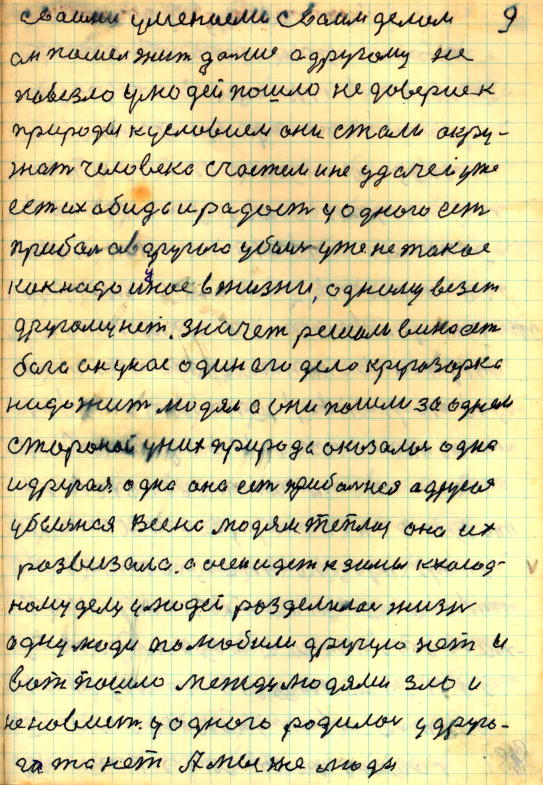 своими умением своим делом 9
он пошел жит далше а другому не
повезло у людей пошло не доверие к
природы к условием они стали окру-
жат человека счастем и не удачей уже
ест их абида и радост у одного ест
прибал а в другого убаля уже не такое
как надо иное в жизни, одному везет
другому нет. значет решали
бога он указ один его дело кругозорка
надо жит людям а они пошли за одной
стороной у них природа оказалас одна
и другая одна она ест прибалнея а другоя
убалянея Весна людям теплая она их
развизала. а осен идет к зимы к холод-
ному делу у людей розделилас жизн
одну люди полюбили другую нет и
вот пошло между людями зло и
не новист. у одного родилос у друго-
га то нет А мы же люди